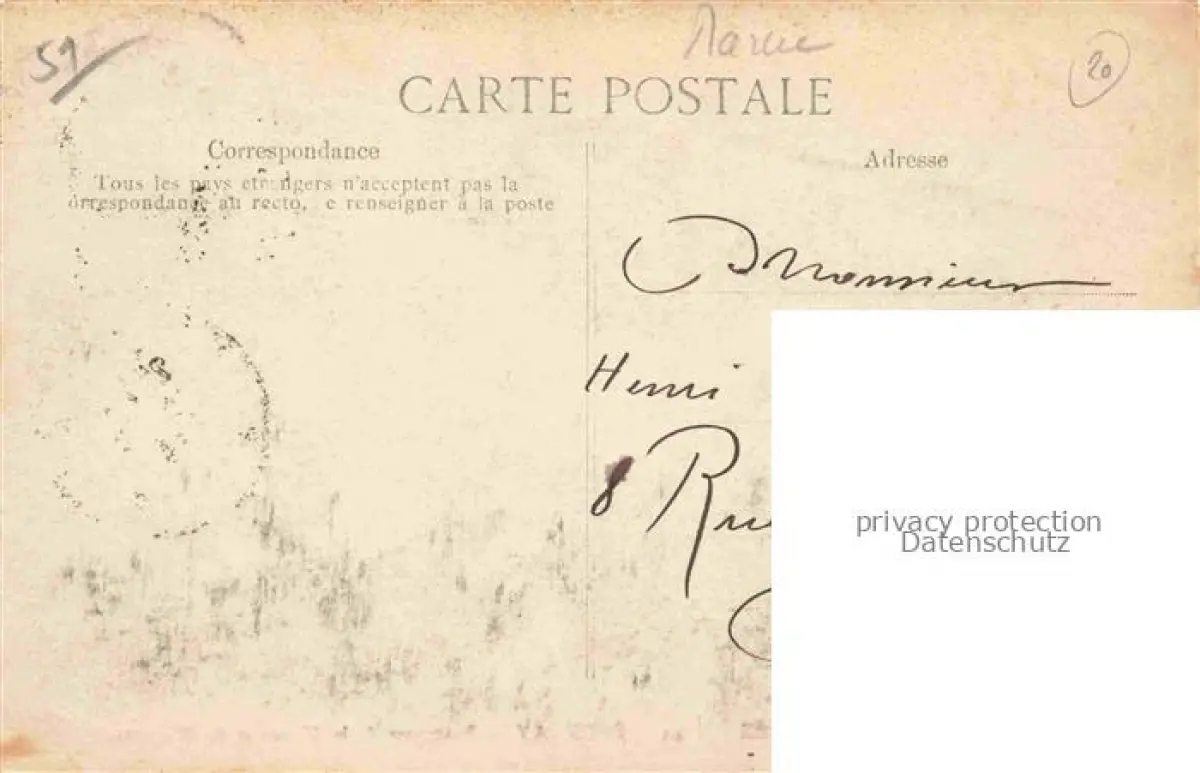 51
Marne
20
CARTE POSTALE
Correspondance
Tous les pays etrangers n'acceptent pas la
orrespondance au recto, e renseigner à la poste
Adresse
Monsieur
Henri
8 Rue
privacy protection
Datenschutz